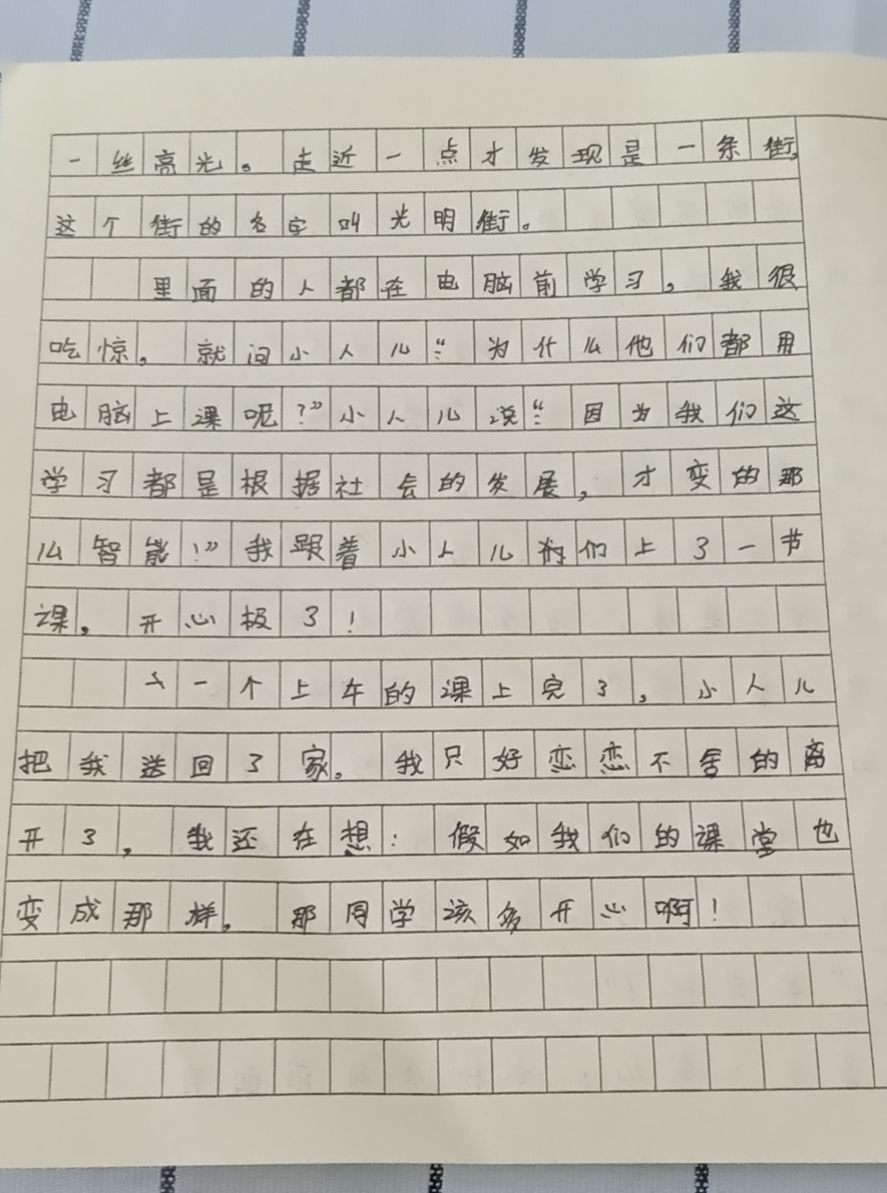 一丝亮光。走近一点才发现是一条街,
这个街的名字叫光明街。
里面的人都在电脑前学习,我很
吃惊,就问小人儿:“为什么他们都用
电脑上课呢?”小人儿说:“因为我们这
学习都是根据社会的发展,才变的那
么智能!”我跟着小人儿们上了一节
课,开心极了!
一个上午的课上完了,小人儿
把我送回了家。我只好恋恋不舍的离
开了,我还在想:假如我们的课堂也
变成那样,那同学该多开心啊!